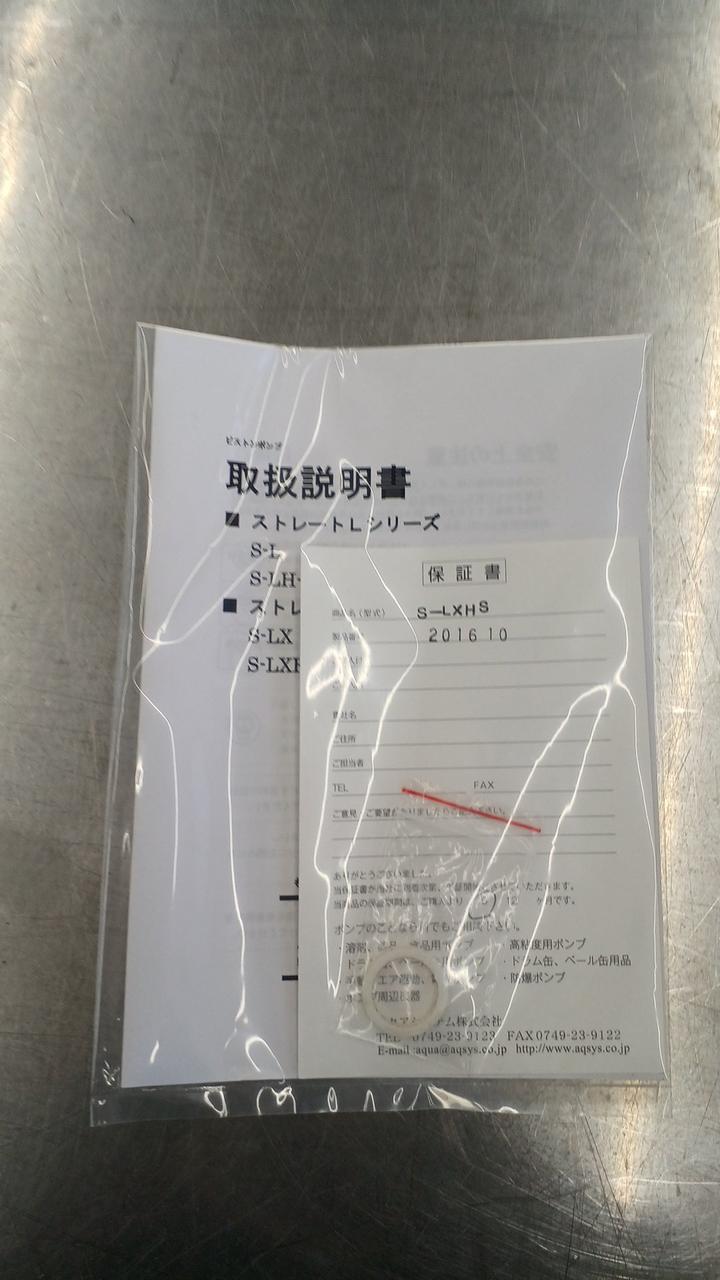 ピストンポンプ
取扱説明書
■ ストレートLシリーズ
S-L
S-LH-
■ ストレ
S-LX
S-LXH
保証書
商品名(型式) S-LXHS
製品番 2016 10
貴社名
ご住所
ご担当者
TEL FAX
ご意見、ご要望
ありがとうございました。
当保証書が当社に到着次第、
当商品の保証期間は、ご購入より 6 12 ヶ月です。
ポンプのことなら何でもご相談下さい。
・溶剤、 食品用ポンプ ・高粘度用ポンプ
ドラ 用ポンプ ・ドラム缶、ペール缶用品
エア ・防爆ポンプ
周辺機器
テム株式会社
TEL 0749-23-9123 FAX 0749-23-9122
E-mail :aqua@aqsys.co.jp http://www.aqsys.co.jp